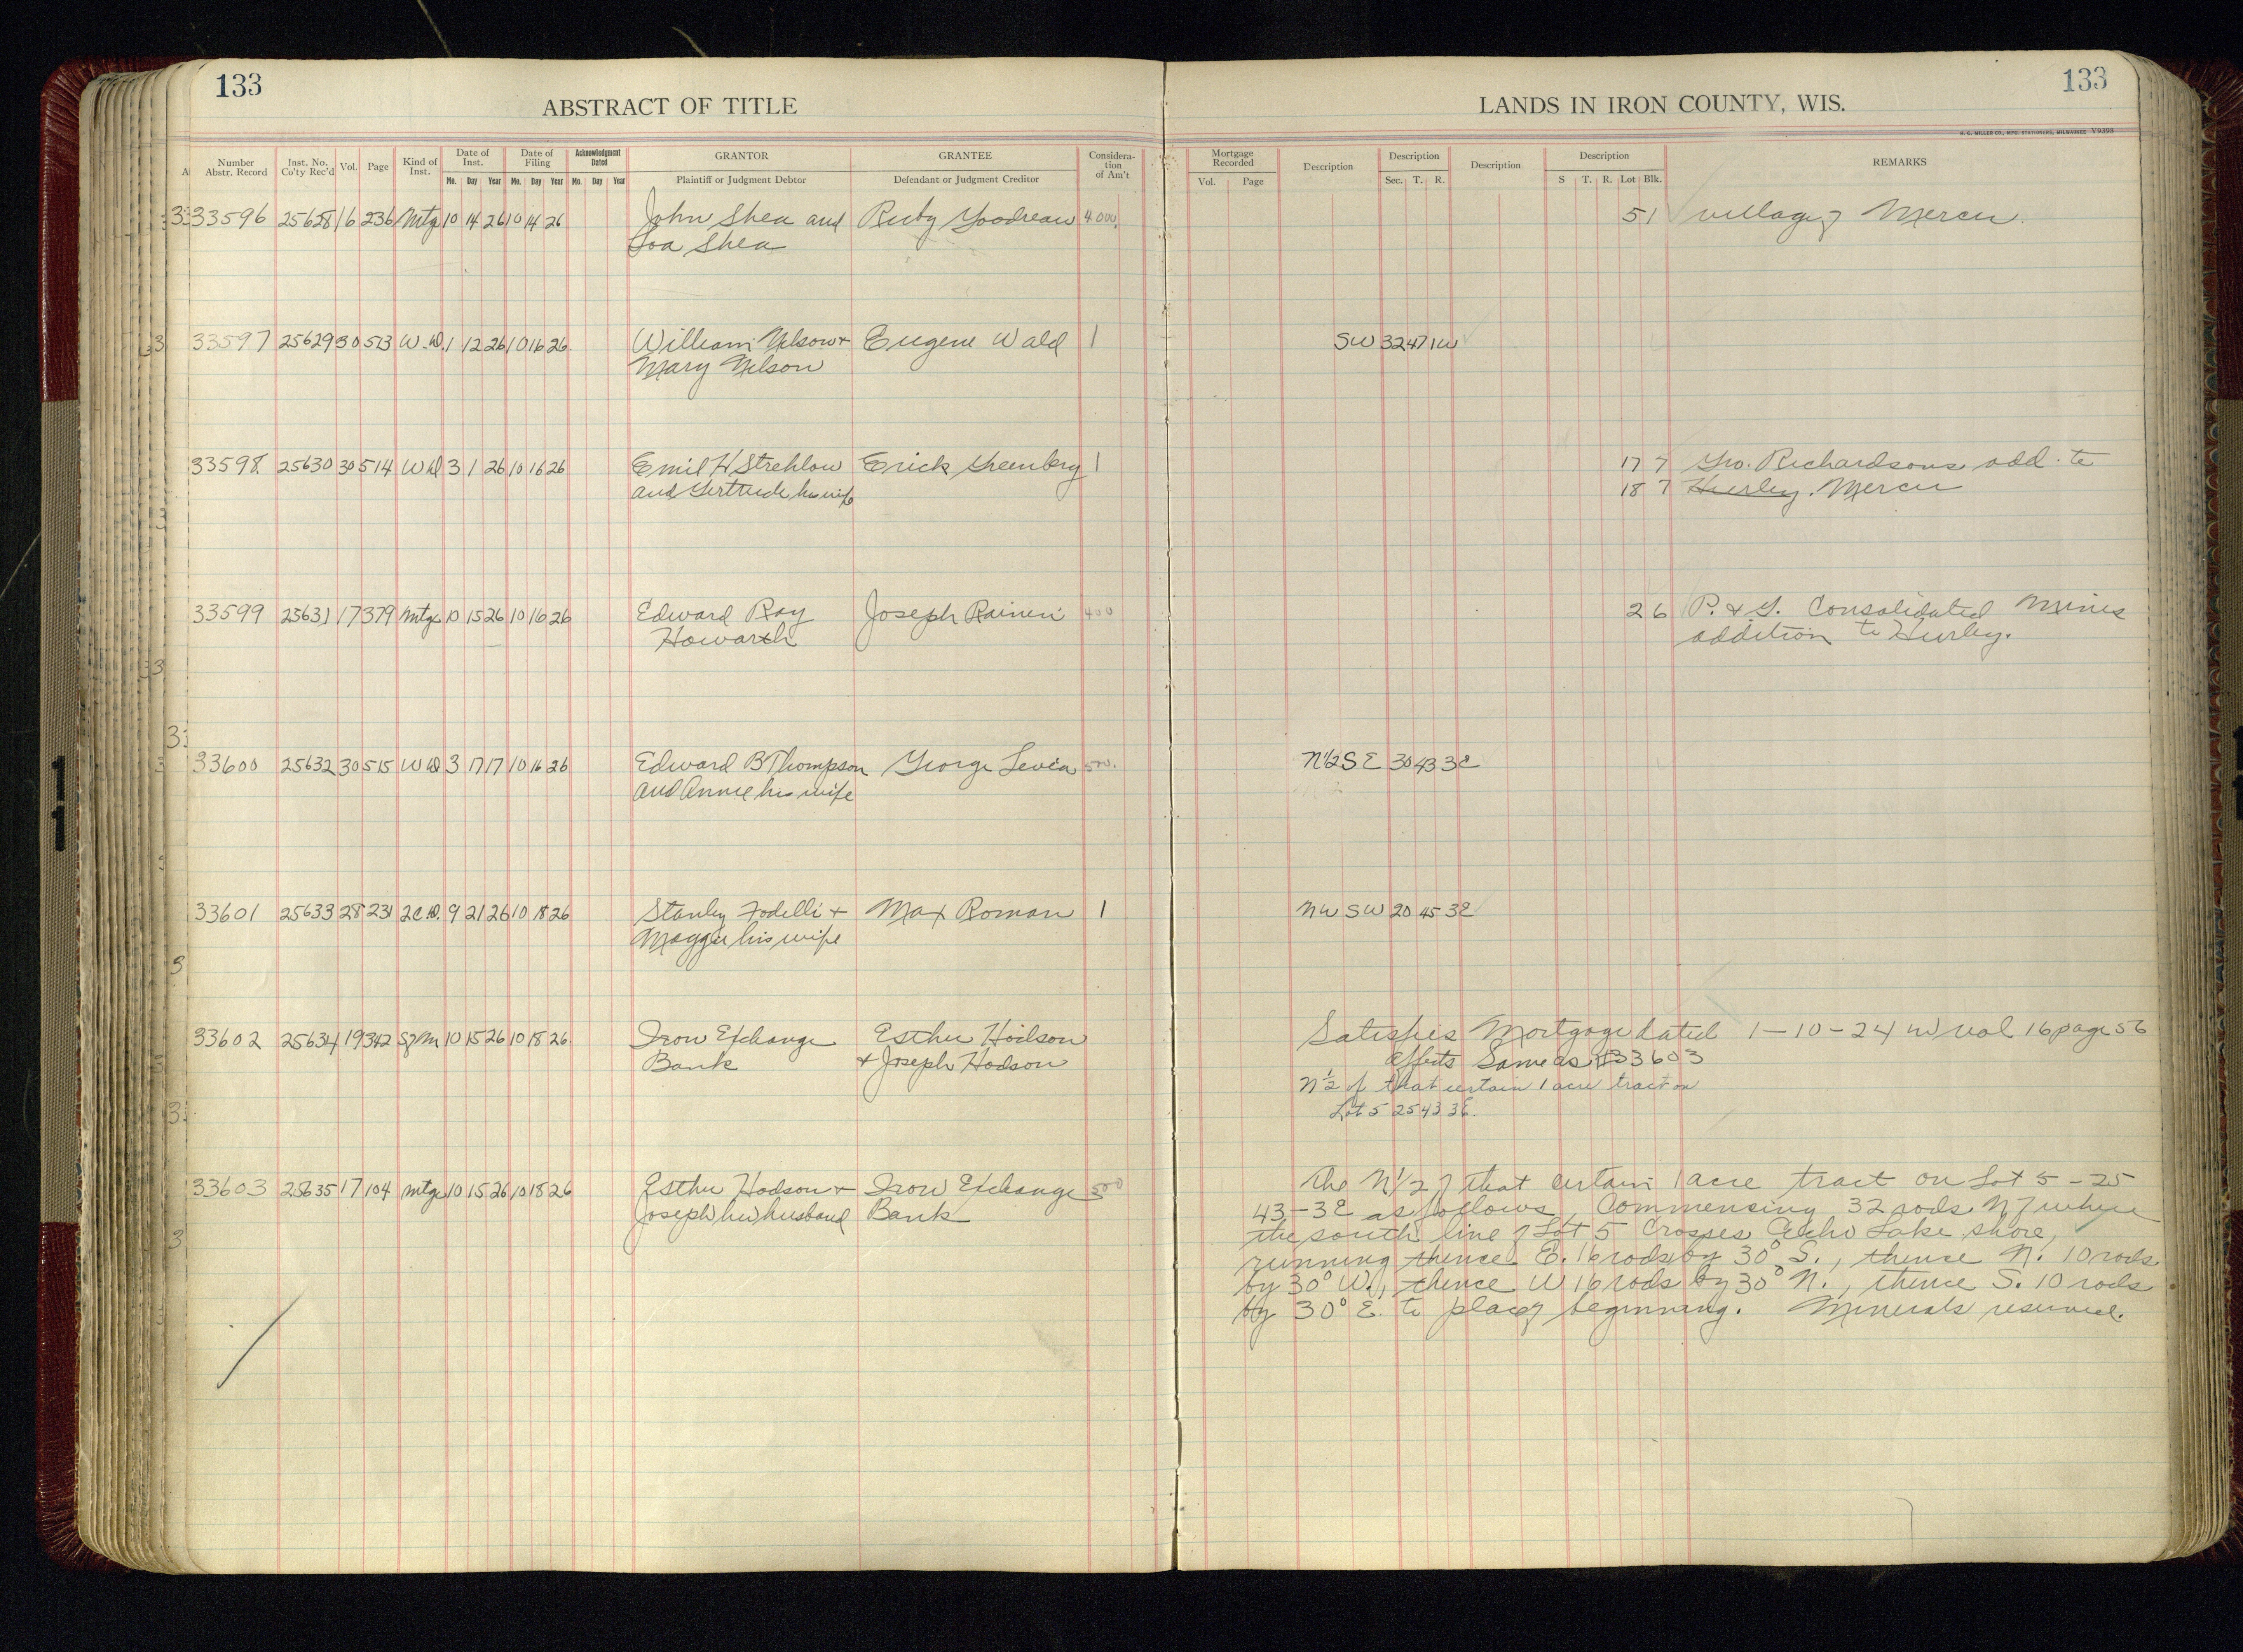 133
133
ABSTRACT OF TITLE
LANDS IN IRON COUNTY, WIS.
H. C. MILLER CO., MFG. STATIONERS, MILWAUKEE V9393
Number Abstr. Record Inst. No. Co'ty Rec'd Vol. Page Kind of Inst. Date of Inst. Date of Filing Acknowledgment Dated GRANTOR GRANTEE Consideration of Am't Mortgage Recorded Description Description Description Description REMARKS
Mo. Day Year Mo. Day Year Mo. Day Year Plaintiff or Judgment Debtor Defendant or Judgment Creditor Vol. Page Sec. T. R. S T. R. Lot Blk.
33596 25628 16 236 Mtg 10 14 26 10 14 26 John Shea and Ruby Goodreau 4000. 5 1 village of Mercer.
Loa Shea
33597 25629 30 513 W.D. 1 12 26 10 16 26 William Nelson + Eugene Wald 1 SW 32 47 1W
Mary Nelson
33598 25630 30 514 WD 3 1 26 10 16 26 Emil H Strehlow Erick Greenberg 1 17 7 Geo. Richardsons add. to
and Gertrude his wife 18 7 Hurley. Mercer
33599 25631 17 379 Mtg 10 15 26 10 16 26 Edward Ray Joseph Raineri 400 2 6 P. & G. Consolidated Mines
Howarth addition to Hurley.
33600 25632 30 515 WD 3 17 17 10 16 26 Edward B Thompson George Levia 500. N1/2 SE 30 43 3E
and Annie his wife
33601 25633 28 231 2C.D. 9 21 26 10 18 26 Stanley Fodelli + Max Roman 1 NW SW 20 45 3E
Maggie his wife
33602 25634 19 342 SfM 10 15 26 10 18 26 Iron Exchange Esther Hodson Satisfies Mortgage dated 1-10-24 in vol 16 page 56
Bank + Joseph Hodson affects Same as #33603
N 1/2 of that certain 1 acre tract on
Lot 5 25 43 3E.
33603 25635 17 104 Mtg 10 15 26 10 18 26 Esther Hodson + Iron Exchange 500 The N 1/2 of that certain 1 acre tract on Lot 5-25
Joseph, her husband Bank 43-3E as follows, Commencing 32 rods N of where
the south line of Lot 5 crosses Echo Lake shore,
running thence E. 16 rods by 30° S., thence N. 10 rods
by 30° W., thence W 16 rods by 30° N., thence S. 10 rods
by 30° E. to place of beginning. Minerals reserved.